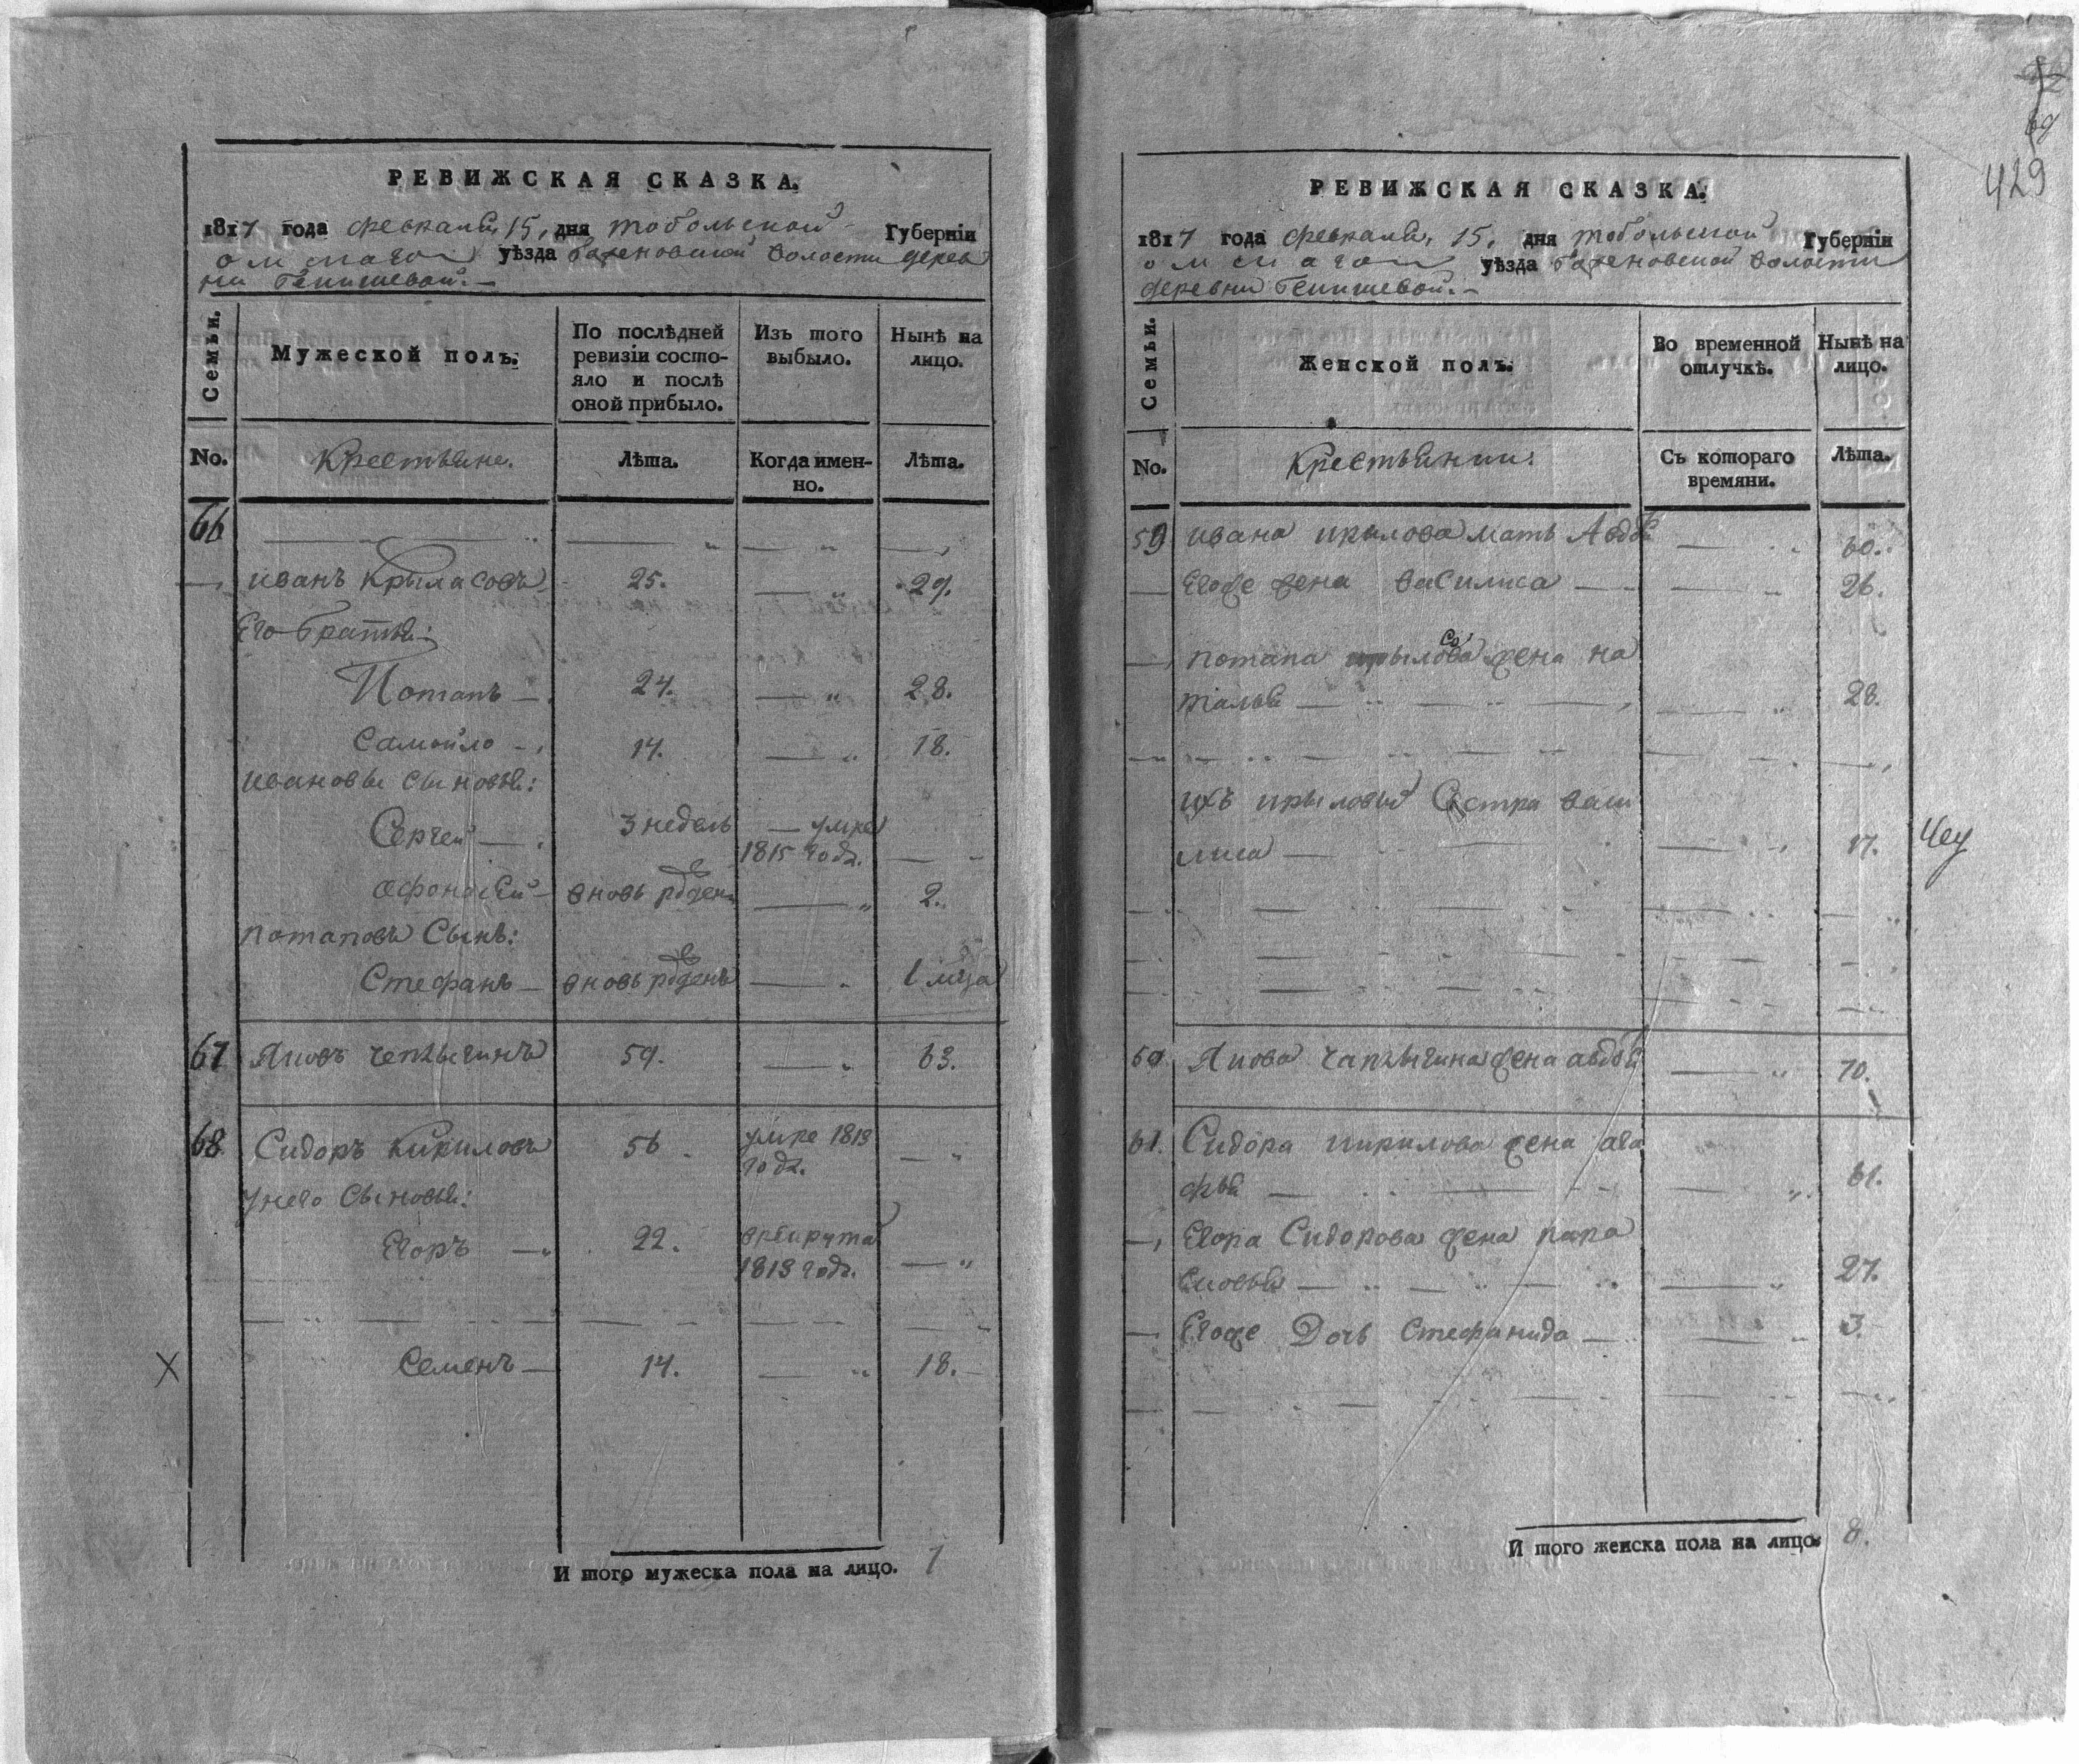 РЕВИЖСКАЯ СКАЗКА.
1817 года февраля 15, дня тобольской Губерніи
омскаго уѣзда баженовской волости дерев
ни Бекишевой.
Семьи. Мужеской полъ. По послѣдней ревизіи состояло и послѣ оной прибыло. Изъ того выбыло. Нынѣ на лицо.
No. Крестьяне. Лѣта. Когда именно. Лѣта.
66
иванъ Крыласовъ 25. 29.
Его братья:
Потапъ 24. 28.
Самойло 14. 18.
ивановы сыновья:
Сергей 3 недель умре
1815 годъ.
Афонасей вновь рожден 2.
потаповъ Сынъ:
Стефанъ вновь рожденъ 1 мца
67 Яковъ чепчыгинъ 59. 63.
68 Сидоръ Кириловъ 56 умре 1813
годъ.
у него Сыновья:
Егоръ 22. врекрута
1813 годъ.
Х Семенъ 14. 18.
И того мужеска пола на лицо. 7
429
РЕВИЖСКАЯ СКАЗКА.
1817 года февраля, 15. дня тобольской Губерніи
омскаго уѣзда баженовской волости
деревни Бекишевой.
Семьи. Женской полъ. Во временной отлучкѣ. Нынѣ на лицо.
No. Крестьянки. Съ котораго времяни. Лѣта.
59 ивана крылова мать 60.
Егоже жена василиса 26.
потапа крылова са жена на
талья 28.
ихъ крыловых Сестра васи
лиса 17.
60. Якова чапчыгина жена авдо 70.
61. Сидора кирилова жена ага
фья 61.
Егора Сидорова жена пара
сковья 27.
Егоже Дочь Стефанида 3.
И того женска пола на лицо 8.